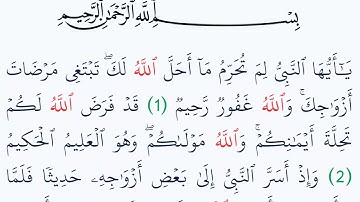 بِسْمِ ٱللَّهِ ٱلرَّحْمَٰنِ ٱلرَّحِيمِ
يَـٰٓأَيُّهَا ٱلنَّبِىُّ لِمَ تُحَرِّمُ مَآ أَحَلَّ ٱللَّهُ لَكَ ۖ تَبْتَغِى مَرْضَاتَ
أَزْوَٰجِكَ ۚ وَٱللَّهُ غَفُورٌ رَّحِيمٌ (1) قَدْ فَرَضَ ٱللَّهُ لَكُمْ
تَحِلَّةَ أَيْمَـٰنِكُمْ ۚ وَٱللَّهُ مَوْلَىٰكُمْ ۖ وَهُوَ ٱلْعَلِيمُ ٱلْحَكِيمُ
(2) وَإِذْ أَسَرَّ ٱلنَّبِىُّ إِلَىٰ بَعْضِ أَزْوَٰجِهِۦ حَدِيثًا فَلَمَّا